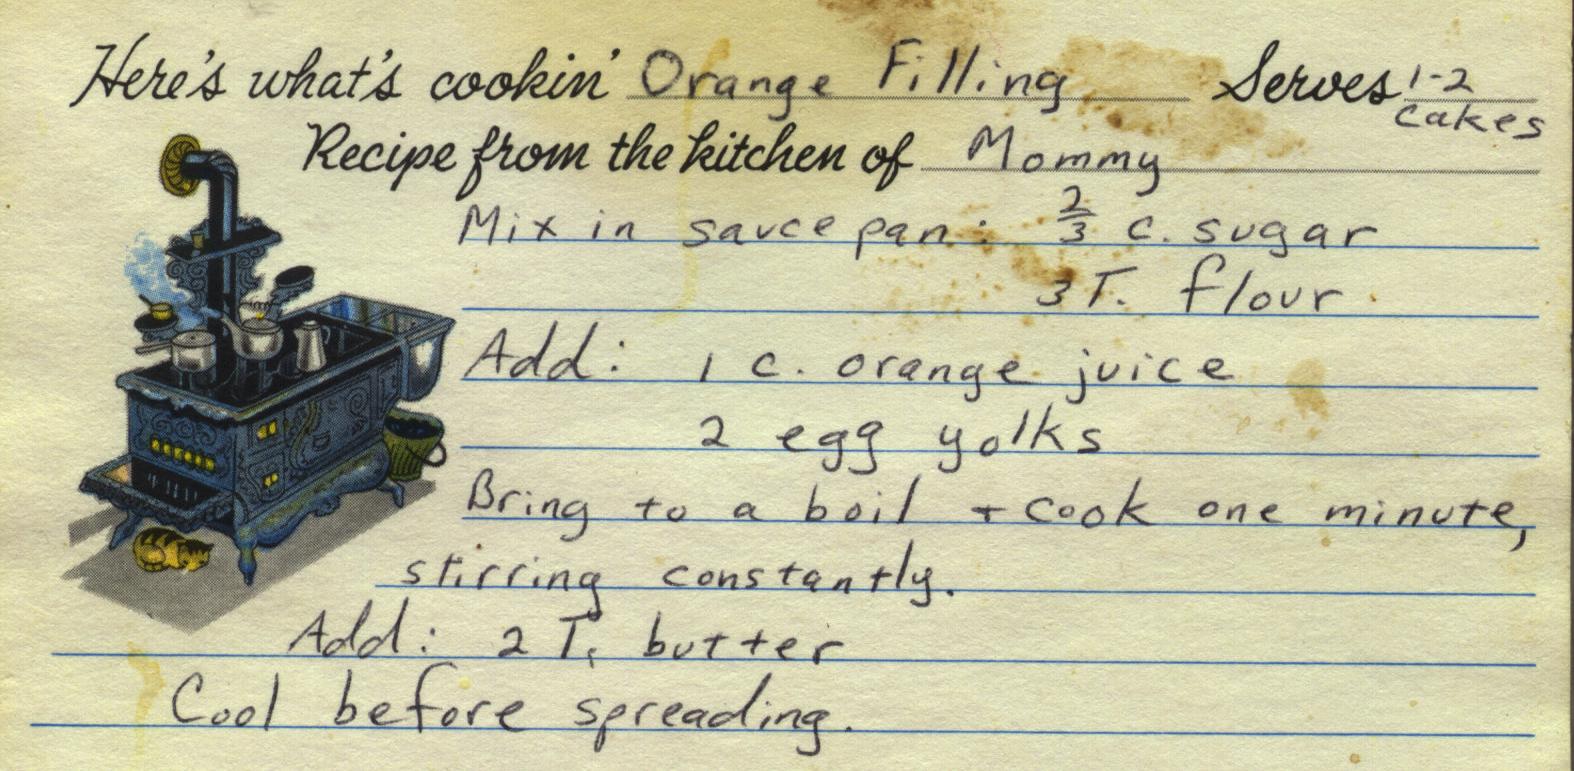 Here's what's cookin' Orange Filling Serves 1-2
cakes
Recipe from the kitchen of Mommy
Mix in saucepan: 2/3 c. sugar
3 T. flour
Add: 1 c. orange juice
2 egg yolks
Bring to a boil + cook one minute,
stirring constantly.
Add: 2 T. butter
Cool before spreading.